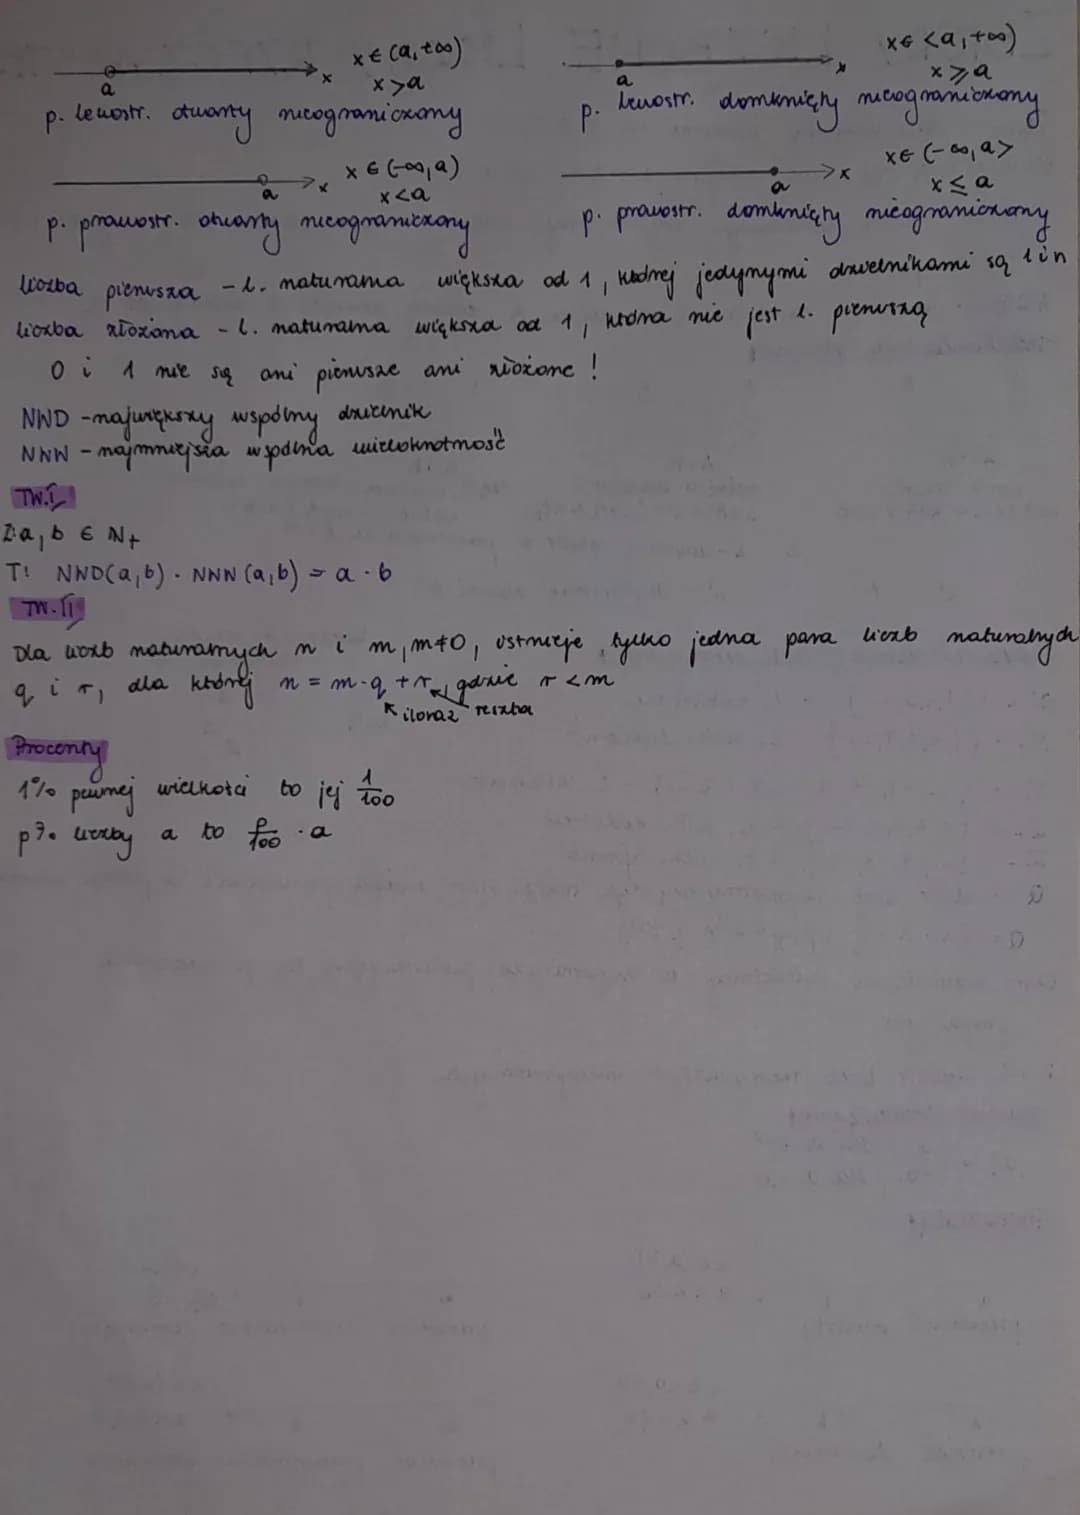 x ∈ (a, +∞)
x > a
a x
p. lewostr. otwarty nieograniczony
x ∈ <a, +∞)
x ⩾ a
a x
p. lewostr. domknięty nieograniczony
x ∈ (-∞, a)
x < a
a x
p. prawostr. otwarty nieograniczony
x ∈ (-∞, a>
x ≤ a
a x
p. prawostr. domknięty nieograniczony
liczba pierwsza - l. naturalna większa od 1, której jedynymi dzielnikami są 1 i n
liczba złożona - l. naturalna większa od 1, która nie jest l. pierwszą
0 i 1 nie są ani pierwsze ani złożone!
NWD - największy wspólny dzielnik
NNW - najmniejsza wspólna wielokrotność
TW. I
Z: a, b ∈ N+
T: NWD(a,b) · NNW(a,b) = a · b
TW. II
Dla liczb naturalnych n i m, m≠0, istnieje tylko jedna para liczb naturalnych
q i r, dla której n = m·q + r, gdzie r < m
iloraz reszta
Procenty
1% pewnej wielkości to jej 1/100
p% liczby a to p/100 · a